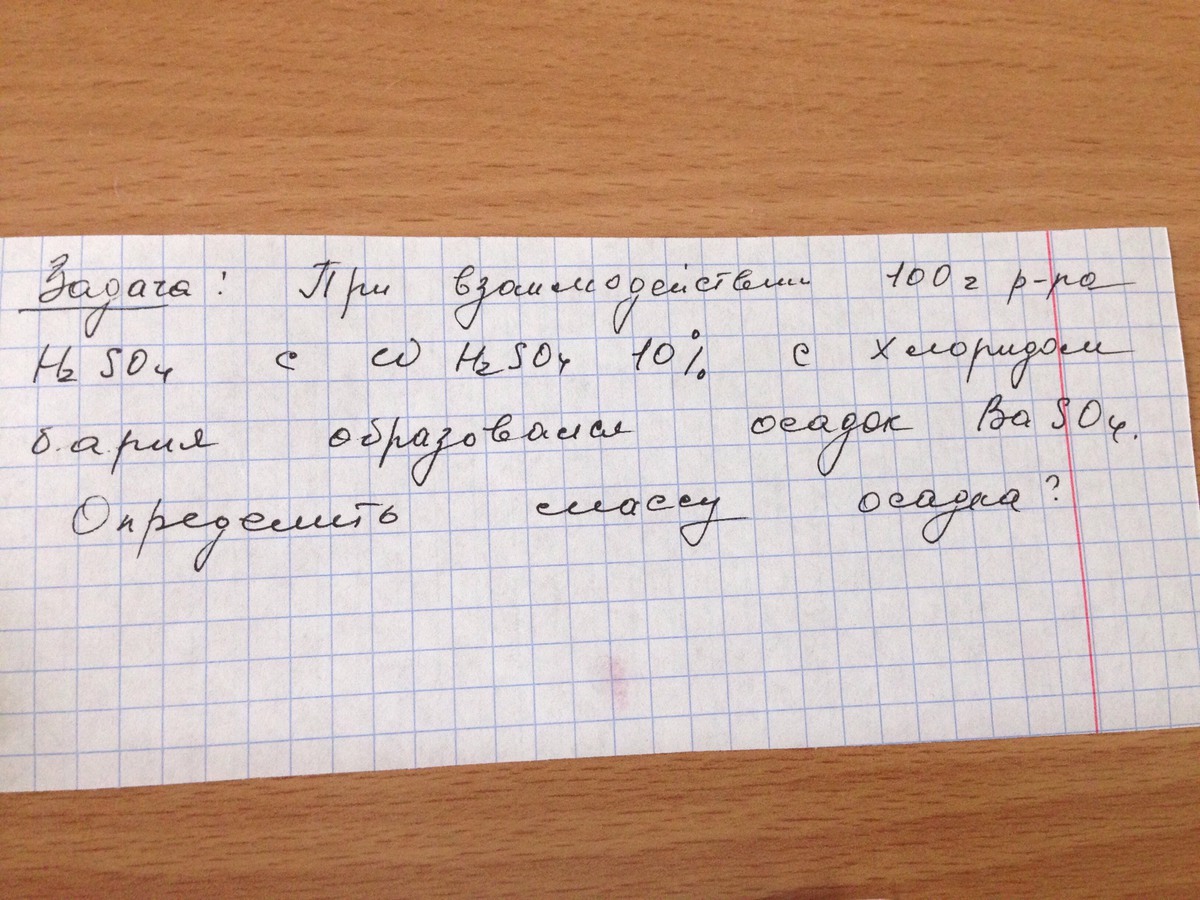 Задача: При взаимодействии 100 г р-ра
H₂SO₄ с ω H₂SO₄ 10% с хлоридом
бария образовался осадок BaSO₄.
Определить массу осадка?